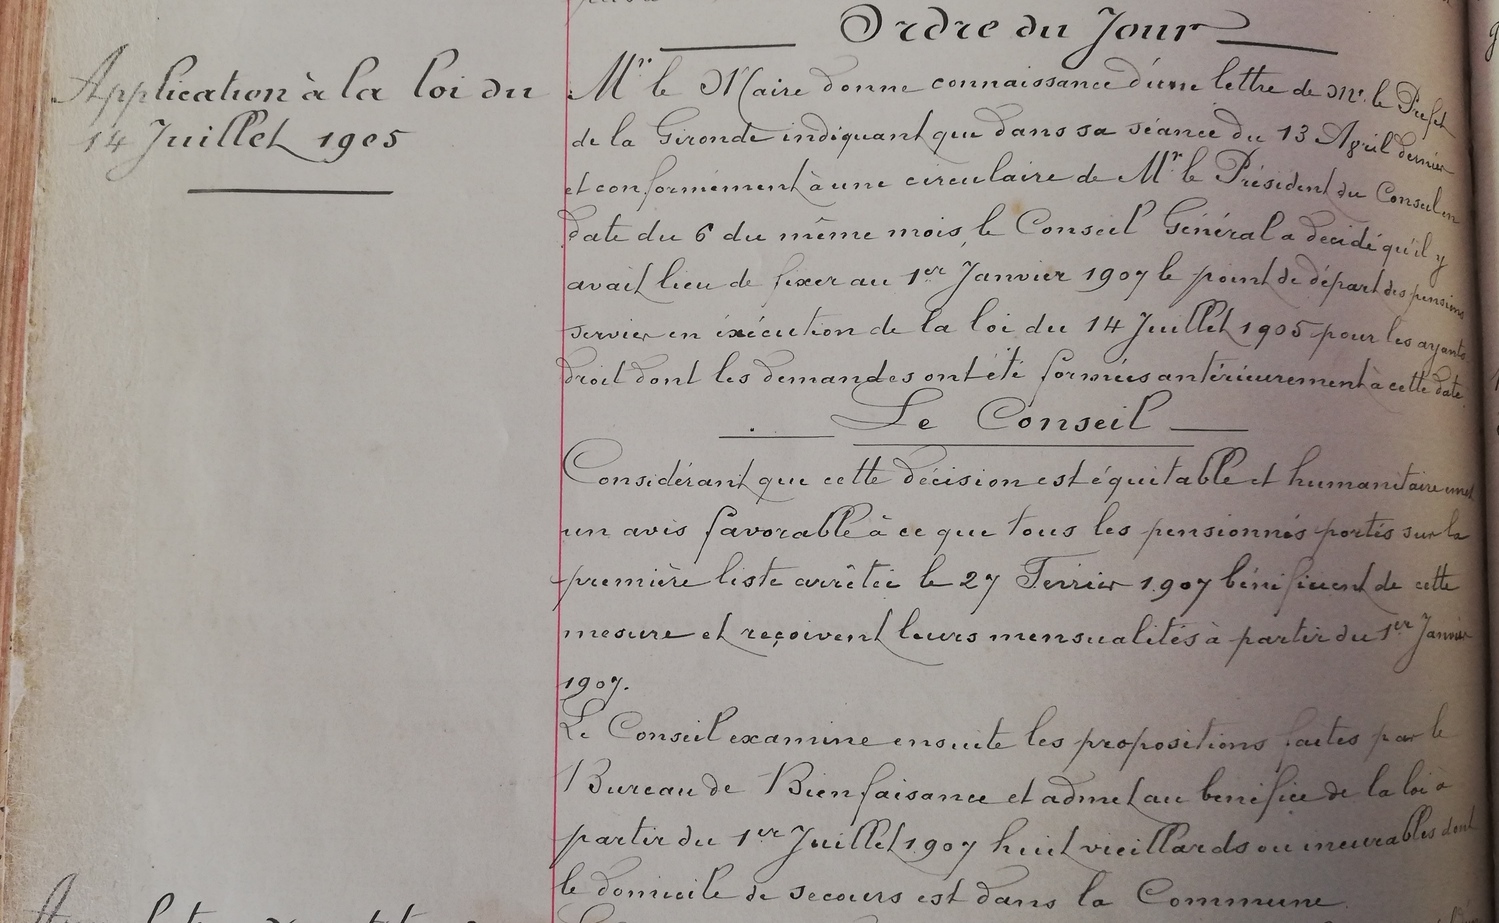 Ordre du Jour
Application à la loi du
14 Juillet 1905
Mr le Maire donne connaissance d'une lettre de Mr. le Préfet
de la Gironde indiquant que dans sa séance du 13 April dernier
et conformément à une circulaire de Mr le Président du Conseil en
date du 6 du même mois, le Conseil Général a décidé qu'il y
avait lieu de fixer au 1er Janvier 1907 le point de départ des pensions
servies en éxécution de la loi du 14 Juillet 1905 pour les ayants
droit dont les demandes ont été formées antérieurement à cette date.
Le Conseil
Considérant que cette décision est équitable et humanitaire émet
un avis favorable à ce que tous les pensionnés portés sur la
première liste arrêtée le 27 Février 1907 bénéficient de cette
mesure et reçoivent leurs mensualités à partir du 1er Janvier
1907.
Le Conseil examine ensuite les propositions faites par le
Bureau de Bienfaisance et admet au bénéfice de la loi à
partir du 1er Juillet 1907 huit vieillards ou incurables dont
le domicile de secours est dans la Commune.